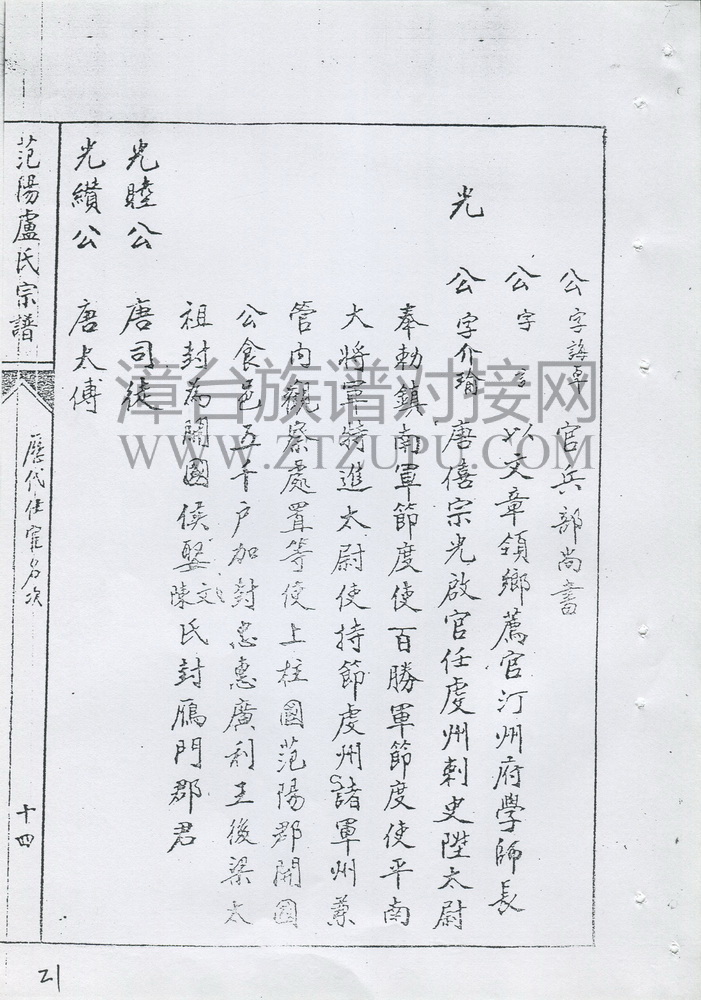 公字諱卓 官兵部尚書
公字 言 以文章領鄉薦官汀州府學師長
光 公字介瑜 唐僖宗光啟官任虔州刺史陞太尉
奉勅鎮南軍節度使百勝軍節度使平南
大將軍特進太尉使持節虔州諸軍州兼
管內觀察處置等使上柱國范陽郡開國
公食邑五千户加封忠惠廣利王後梁太
祖封為開國侯娶陳氏封鴈門郡君
光睦公 唐司徒
光績公 唐太傅
范陽盧氏宗譜
歷代仕宦名次
十四
21
漳台族谱对接网
WWW.ZTZUPU.COM